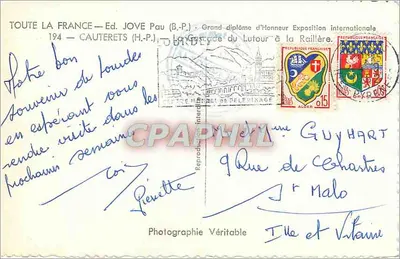 TOUTE LA FRANCE — Ed. JOVE Pau (B.-P.) - Grand diplôme d'Honneur Exposition internationale
194 — CAUTERETS (H.-P.) - La Cascade du Lutour à la Raillère.
LOURDES
DE PELERINAGE
REPUBLIQUE FRANÇAISE
REPUBLIQUE FRANÇAISE
0,15
Notre bon
souvenir de Lourdes
en espérant vous
rendre visite dans les
prochaines semaines
Pierrette
Reproduction interdite
CPAPHIL
M. et Mme GUYHART
9 Rue de Chartres
St Malo
Ille et Vilaine
Photographie Véritable